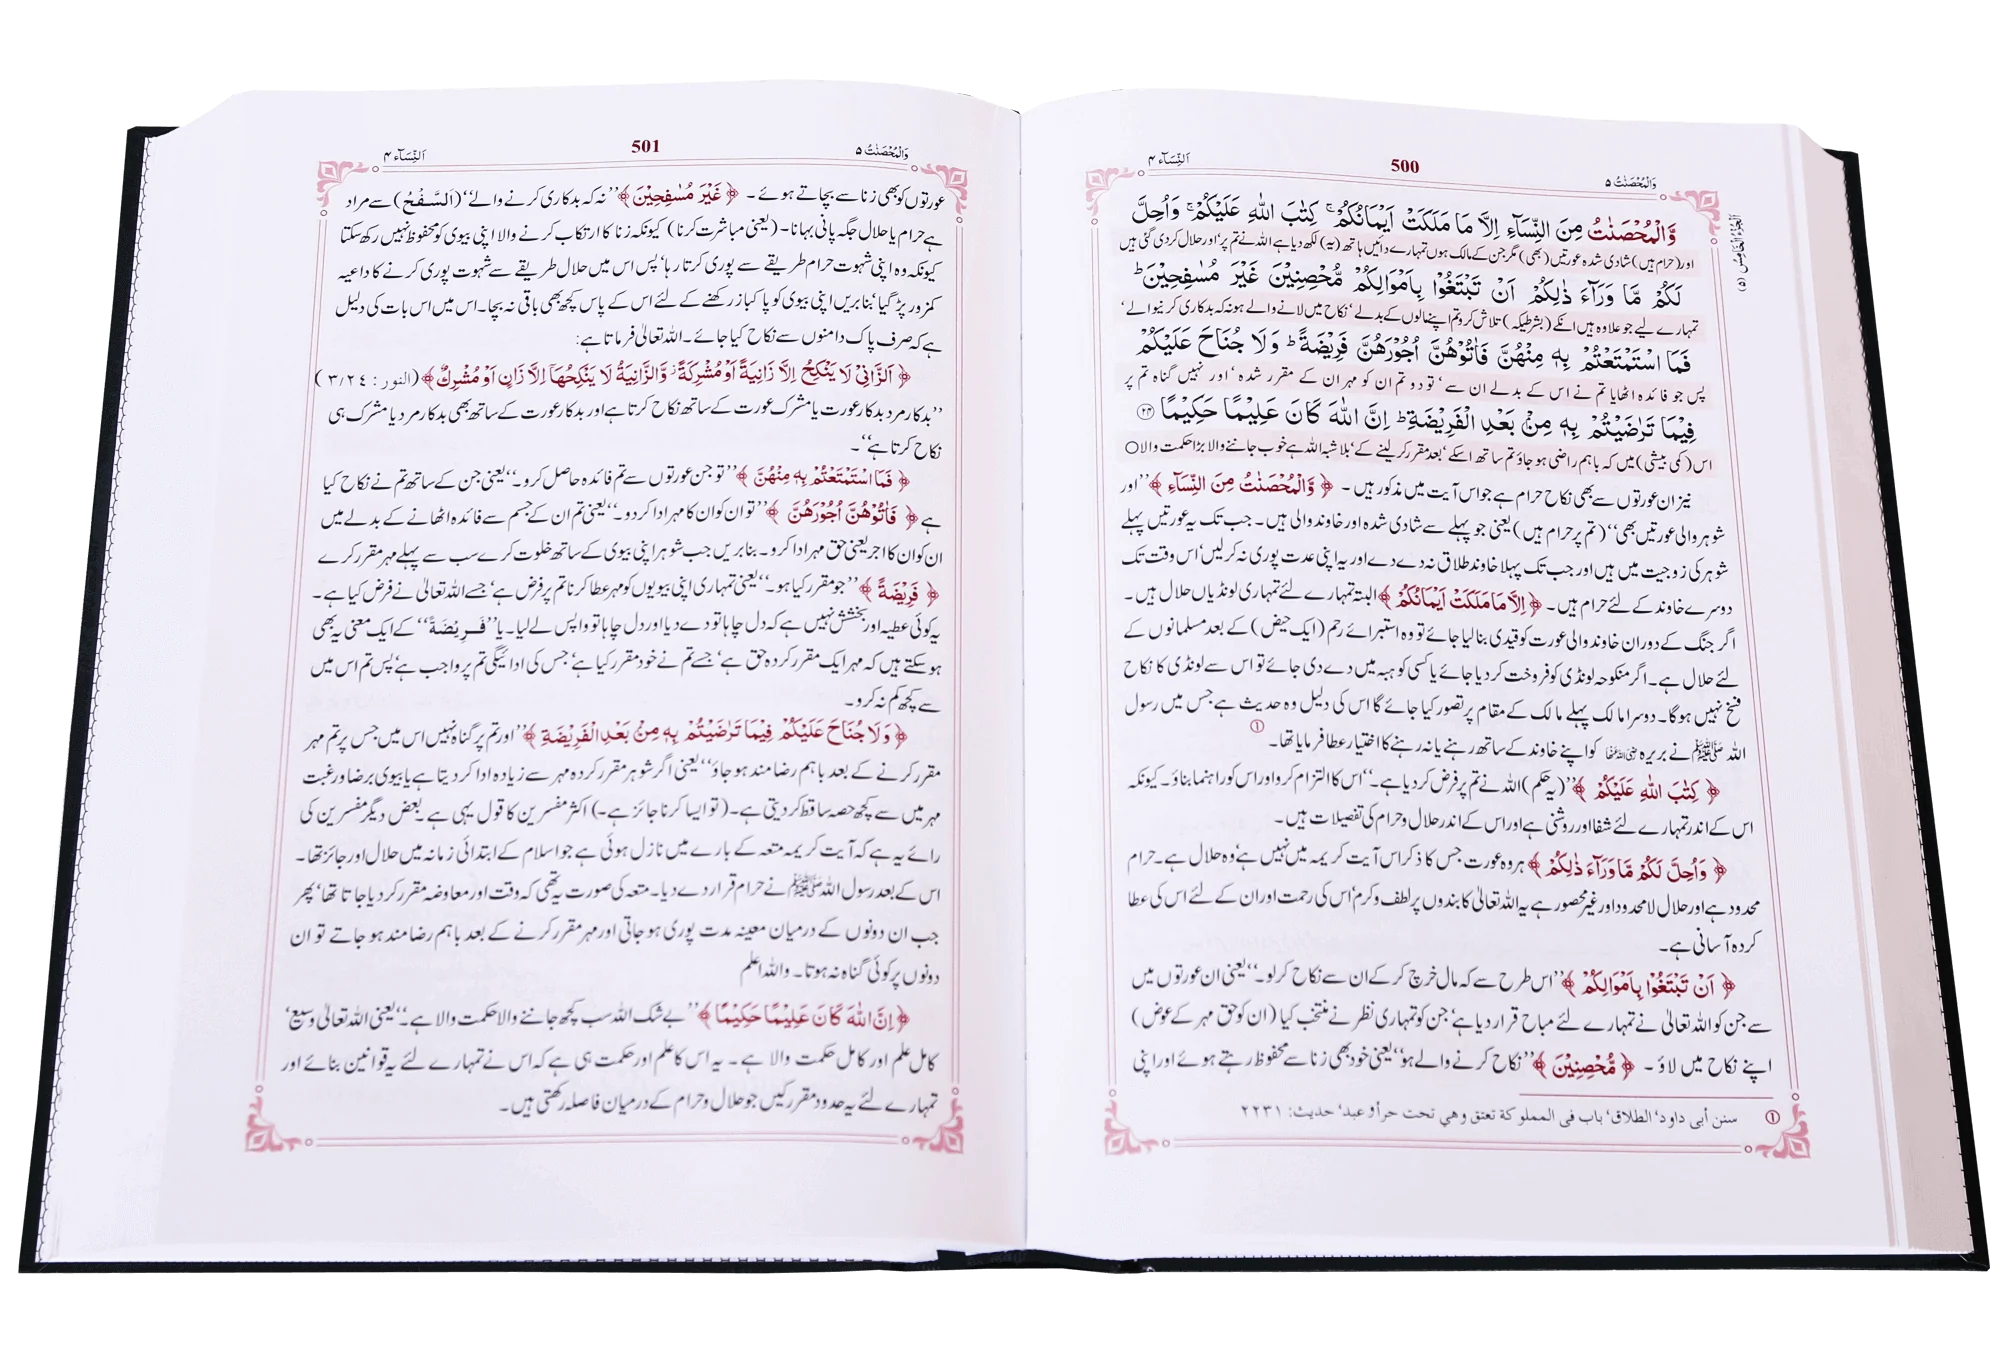 وَالْمُحْصَنٰتُ ۵
500
اَلنِّسَآء ۴
اَلْجُزْءُ الْخَامِسُ (۵)
وَّالْمُحْصَنٰتُ مِنَ النِّسَآءِ اِلَّا مَا مَلَكَتْ اَيْمَانُكُمْ ۚ كِتٰبَ اللّٰهِ عَلَيْكُمْ ۚ وَاُحِلَّ
اور (حرام ہیں) شادی شدہ عورتیں (بھی) مگر جن کے مالک ہوں تمہارے دائیں ہاتھ (یہ) لکھ دیا ہے اللہ نے تم پر‘ اور حلال کردی گئی ہیں
لَكُمْ مَّا وَرَآءَ ذٰلِكُمْ اَنْ تَبْتَغُوْا بِاَمْوَالِكُمْ مُّحْصِنِيْنَ غَيْرَ مُسٰفِحِيْنَ ؕ
تمہارے لیے جو علاوہ ہیں انکے (بشرطیکہ) تلاش کرو تم اپنے مالوں کے بدلے‘ نکاح میں لانے والے ہو نہ کہ بدکاری کرنیوالے‘
فَمَا اسْتَمْتَعْتُمْ بِهٖ مِنْهُنَّ فَاٰتُوْهُنَّ اُجُوْرَهُنَّ فَرِيْضَةً ؕ وَلَا جُنَاحَ عَلَيْكُمْ
پس جو فائدہ اٹھایا تم نے اس کے بدلے ان سے‘ تو دو تم ان کو مہر ان کے مقرر شدہ‘ اور نہیں گناہ تم پر
فِيْمَا تَرٰضَيْتُمْ بِهٖ مِنْۢ بَعْدِ الْفَرِيْضَةِ ؕ اِنَّ اللّٰهَ كَانَ عَلِيْمًا حَكِيْمًا ۲۴
اس (کمی بیشی) میں کہ باہم راضی ہو جاؤ تم ساتھ اسکے‘ بعد مقرر کر لینے کے‘ بلاشبہ اللہ ہے خوب جاننے والا بڑا حکمت والا ○
نیز ان عورتوں سے بھی نکاح حرام ہے جو اس آیت میں مذکور ہیں۔ ﴿ وَّالْمُحْصَنٰتُ مِنَ النِّسَآءِ ﴾ ’’اور
شوہر والی عورتیں بھی‘‘ (تم پر حرام ہیں) یعنی جو پہلے سے شادی شدہ اور خاوند والی ہیں۔ جب تک یہ عورتیں پہلے
شوہر کی زوجیت میں ہیں اور جب تک پہلا خاوند طلاق نہ دے دے اور یہ اپنی عدت پوری نہ کر لیں‘ اس وقت تک
دوسرے خاوند کے لئے حرام ہیں۔ ﴿ اِلَّا مَا مَلَكَتْ اَيْمَانُكُمْ ﴾ البتہ تمہارے لئے تمہاری لونڈیاں حلال ہیں۔
اگر جنگ کے دوران خاوند والی عورت کو قیدی بنا لیا جائے تو وہ استبرائے رحم (ایک حیض) کے بعد مسلمانوں کے
لئے حلال ہے۔ اگر منکوحہ لونڈی کو فروخت کر دیا جائے یا کسی کو ہبہ میں دے دی جائے تو اس سے لونڈی کا نکاح
فسخ نہیں ہوگا۔ دوسرا مالک پہلے مالک کے مقام پر تصور کیا جائے گا اس کی دلیل وہ حدیث ہے جس میں رسول
اللہ ﷺ نے بریرہ رضی اللہ عنہا کو اپنے خاوند کے ساتھ رہنے یا نہ رہنے کا اختیار عطا فرمایا تھا۔①
﴿ كِتٰبَ اللّٰهِ عَلَيْكُمْ ﴾ ’’(یہ حکم) اللہ نے تم پر فرض کر دیا ہے۔‘‘ اس کا التزام کرو اور اس کو راہنما بناؤ۔ کیونکہ
اس کے اندر تمہارے لئے شفا اور روشنی ہے اور اس کے اندر حلال و حرام کی تفصیلات ہیں۔
﴿ وَاُحِلَّ لَكُمْ مَّا وَرَآءَ ذٰلِكُمْ ﴾ ہر وہ عورت جس کا ذکر اس آیت کریمہ میں نہیں ہے‘ وہ حلال ہے۔ حرام
محدود ہے اور حلال لامحدود اور غیر محصور ہے یہ اللہ تعالیٰ کا بندوں پر لطف و کرم‘ اس کی رحمت اور ان کے لئے اس کی عطا
کردہ آسانی ہے۔
﴿ اَنْ تَبْتَغُوْا بِاَمْوَالِكُمْ ﴾ ’’اس طرح سے کہ مال خرچ کر کے ان سے نکاح کر لو۔‘‘ یعنی ان عورتوں میں
سے جن کو اللہ تعالیٰ نے تمہارے لئے مباح قرار دیا ہے‘ جن کو تمہاری نظر نے منتخب کیا (ان کو حق مہر کے عوض)
اپنے نکاح میں لاؤ۔ ﴿ مُّحْصِنِيْنَ ﴾ ’’نکاح کرنے والے ہو‘‘ یعنی خود بھی زنا سے محفوظ رہتے ہوئے اور اپنی
① سنن أبی داود‘ الطلاق‘ باب فی المملوکة تعتق وهي تحت حر أو عبد‘ حدیث: ۲۲۳۱
وَالْمُحْصَنٰتُ ۵
501
اَلنِّسَآء ۴
عورتوں کو بھی زنا سے بچاتے ہوئے۔ ﴿ غَيْرَ مُسٰفِحِيْنَ ﴾ ’’نہ کہ بدکاری کرنے والے‘‘ (اَلسَّفْحُ) سے مراد
ہے حرام یا حلال جگہ پانی بہانا۔ (یعنی مباشرت کرنا) کیونکہ زنا کا ارتکاب کرنے والا اپنی بیوی کو محفوظ نہیں رکھ سکتا
کیونکہ وہ اپنی شہوت حرام طریقے سے پوری کرتا رہا‘ پس اس میں حلال طریقے سے شہوت پوری کرنے کا داعیہ
کمزور پڑ گیا‘ بنابریں اپنی بیوی کو پاکباز رکھنے کے لئے اس کے پاس کچھ بھی باقی نہ بچا۔ اس میں اس بات کی دلیل
ہے کہ صرف پاک دامنوں سے نکاح کیا جائے۔ اللہ تعالیٰ فرماتا ہے:
﴿ اَلزَّانِيْ لَا يَنْكِحُ اِلَّا زَانِيَةً اَوْ مُشْرِكَةً ۡ وَّالزَّانِيَةُ لَا يَنْكِحُهَا اِلَّا زَانٍ اَوْ مُشْرِكٌ ﴾ (النور: ۳/۲۴)
’’بدکار مرد بدکار عورت یا مشرک عورت کے ساتھ نکاح کرتا ہے اور بدکار عورت کے ساتھ بھی بدکار مرد یا مشرک ہی
نکاح کرتا ہے‘‘۔
﴿ فَمَا اسْتَمْتَعْتُمْ بِهٖ مِنْهُنَّ ﴾ ’’تو جن عورتوں سے تم فائدہ حاصل کرو۔‘‘ یعنی جن کے ساتھ تم نے نکاح کیا
ہے ﴿ فَاٰتُوْهُنَّ اُجُوْرَهُنَّ ﴾ ’’تو ان کو ان کا مہر ادا کر دو۔‘‘ یعنی تم ان کے جسم سے فائدہ اٹھانے کے بدلے میں
ان کو ان کا اجر یعنی حق مہر ادا کرو۔ بنابریں جب شوہر اپنی بیوی کے ساتھ خلوت کرے سب سے پہلے مہر مقرر کرے
﴿ فَرِيْضَةً ﴾ ’’جو مقرر کیا ہو۔‘‘ یعنی تمہاری اپنی بیویوں کو مہر عطا کرنا تم پر فرض ہے‘ جسے اللہ تعالیٰ نے فرض کیا ہے۔
یہ کوئی عطیہ اور بخشش نہیں ہے کہ دل چاہا تو دے دیا اور دل چاہا تو واپس لے لیا۔ یا ’’فَرِيْضَةً‘‘ کے ایک معنی یہ بھی
ہو سکتے ہیں کہ مہر ایک مقرر کردہ حق ہے‘ جسے تم نے خود مقرر کیا ہے‘ جس کی ادائیگی تم پر واجب ہے‘ پس تم اس میں
سے کچھ کم نہ کرو۔
﴿ وَلَا جُنَاحَ عَلَيْكُمْ فِيْمَا تَرٰضَيْتُمْ بِهٖ مِنْۢ بَعْدِ الْفَرِيْضَةِ ﴾ ’’اور تم پر گناہ نہیں اس میں جس پر تم مہر
مقرر کرنے کے بعد باہم رضامند ہو جاؤ‘‘ یعنی اگر شوہر مقرر کردہ مہر سے زیادہ ادا کر دیتا ہے یا بیوی برضا و رغبت
مہر میں سے کچھ حصہ ساقط کر دیتی ہے۔ (تو ایسا کرنا جائز ہے۔) اکثر مفسرین کا قول یہی ہے بعض دیگر مفسرین کی
رائے یہ ہے کہ آیت کریمہ متعہ کے بارے میں نازل ہوئی ہے جو اسلام کے ابتدائی زمانہ میں حلال اور جائز تھا۔
اس کے بعد رسول اللہ ﷺ نے حرام قرار دے دیا۔ متعہ کی صورت یہ تھی کہ وقت اور معاوضہ مقرر کر دیا جاتا تھا‘ پھر
جب ان دونوں کے درمیان معینہ مدت پوری ہو جاتی اور مہر مقرر کرنے کے بعد باہم رضامند ہو جاتے تو ان
دونوں پر کوئی گناہ نہ ہوتا۔ واللہ اعلم
﴿ اِنَّ اللّٰهَ كَانَ عَلِيْمًا حَكِيْمًا ﴾ ’’بے شک اللہ سب کچھ جاننے والا حکمت والا ہے۔‘‘ یعنی اللہ تعالیٰ وسیع‘
کامل علم اور کامل حکمت والا ہے۔ یہ اس کا علم اور حکمت ہی ہے کہ اس نے تمہارے لئے یہ قوانین بنائے اور
تمہارے لئے یہ حدود مقرر کیں جو حلال و حرام کے درمیان فاصلہ رکھتی ہیں۔